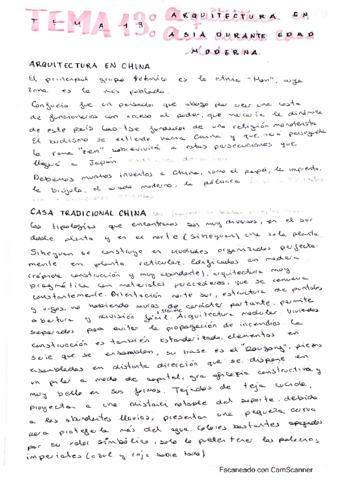 TEMA 13: ARQUITECTURA EN
ASIA DURANTE EDAD
MODERNA.
ARQUITECTURA EN CHINA
El principal grupo étnico es la etnia "Han", cuya
zona es la más poblada.
Confucio fue un pensador que abogó por crear una casta
de funcionarios con acceso al poder, que marcaría la dinámica
de este país. Lao Tse fundador de una religión monoteísta
El budismo se extiende hacia China y que será perseguido
la rama "zen" sobrevivirá a estas persecuciones que
llegará a Japón.
Debemos muchos inventos a China, como el papel, la imprenta,
la brújula, el arado moderno, la pólvora
CASA TRADICIONAL CHINA
Las tipologías que encontramos son muy diversas, en el sur
doble planta y en el norte (siheyuan) una sola planta
Siheyuan se construye en ciudades organizadas perfecta-
mente en planta reticular. Edificadas en madera
(rápida construcción y muy abundante), arquitectura muy
pragmática con materiales perecederos, que se renueva
constantemente. Orientación norte sur, estructura de puntales
y vigas, no habiendo muros de carácter portante, permite
abertura y división fácil. Arquitectura modular. Viviendas
separadas para evitar la propagación de incendios. La
construcción es también estandarizada, elementos en
serie que se ensamblan, su base es el "Dougong", piezas
ensambladas en distinta dirección que se dispone en
un pilar a modo de capitel, gran eficacia constructiva y
muy bello en sus formas. Tejados de teja cocida,
proyectan a una distancia notable del soporte, debido
a las abundantes lluvias, presentan una pequeña curva
para protegerla más del agua. Colores bastantes apagados
por su valor simbólico, solo lo pueden tener los palacios
imperiales (azul y rojo sobre todo)
Escaneado con CamScanner